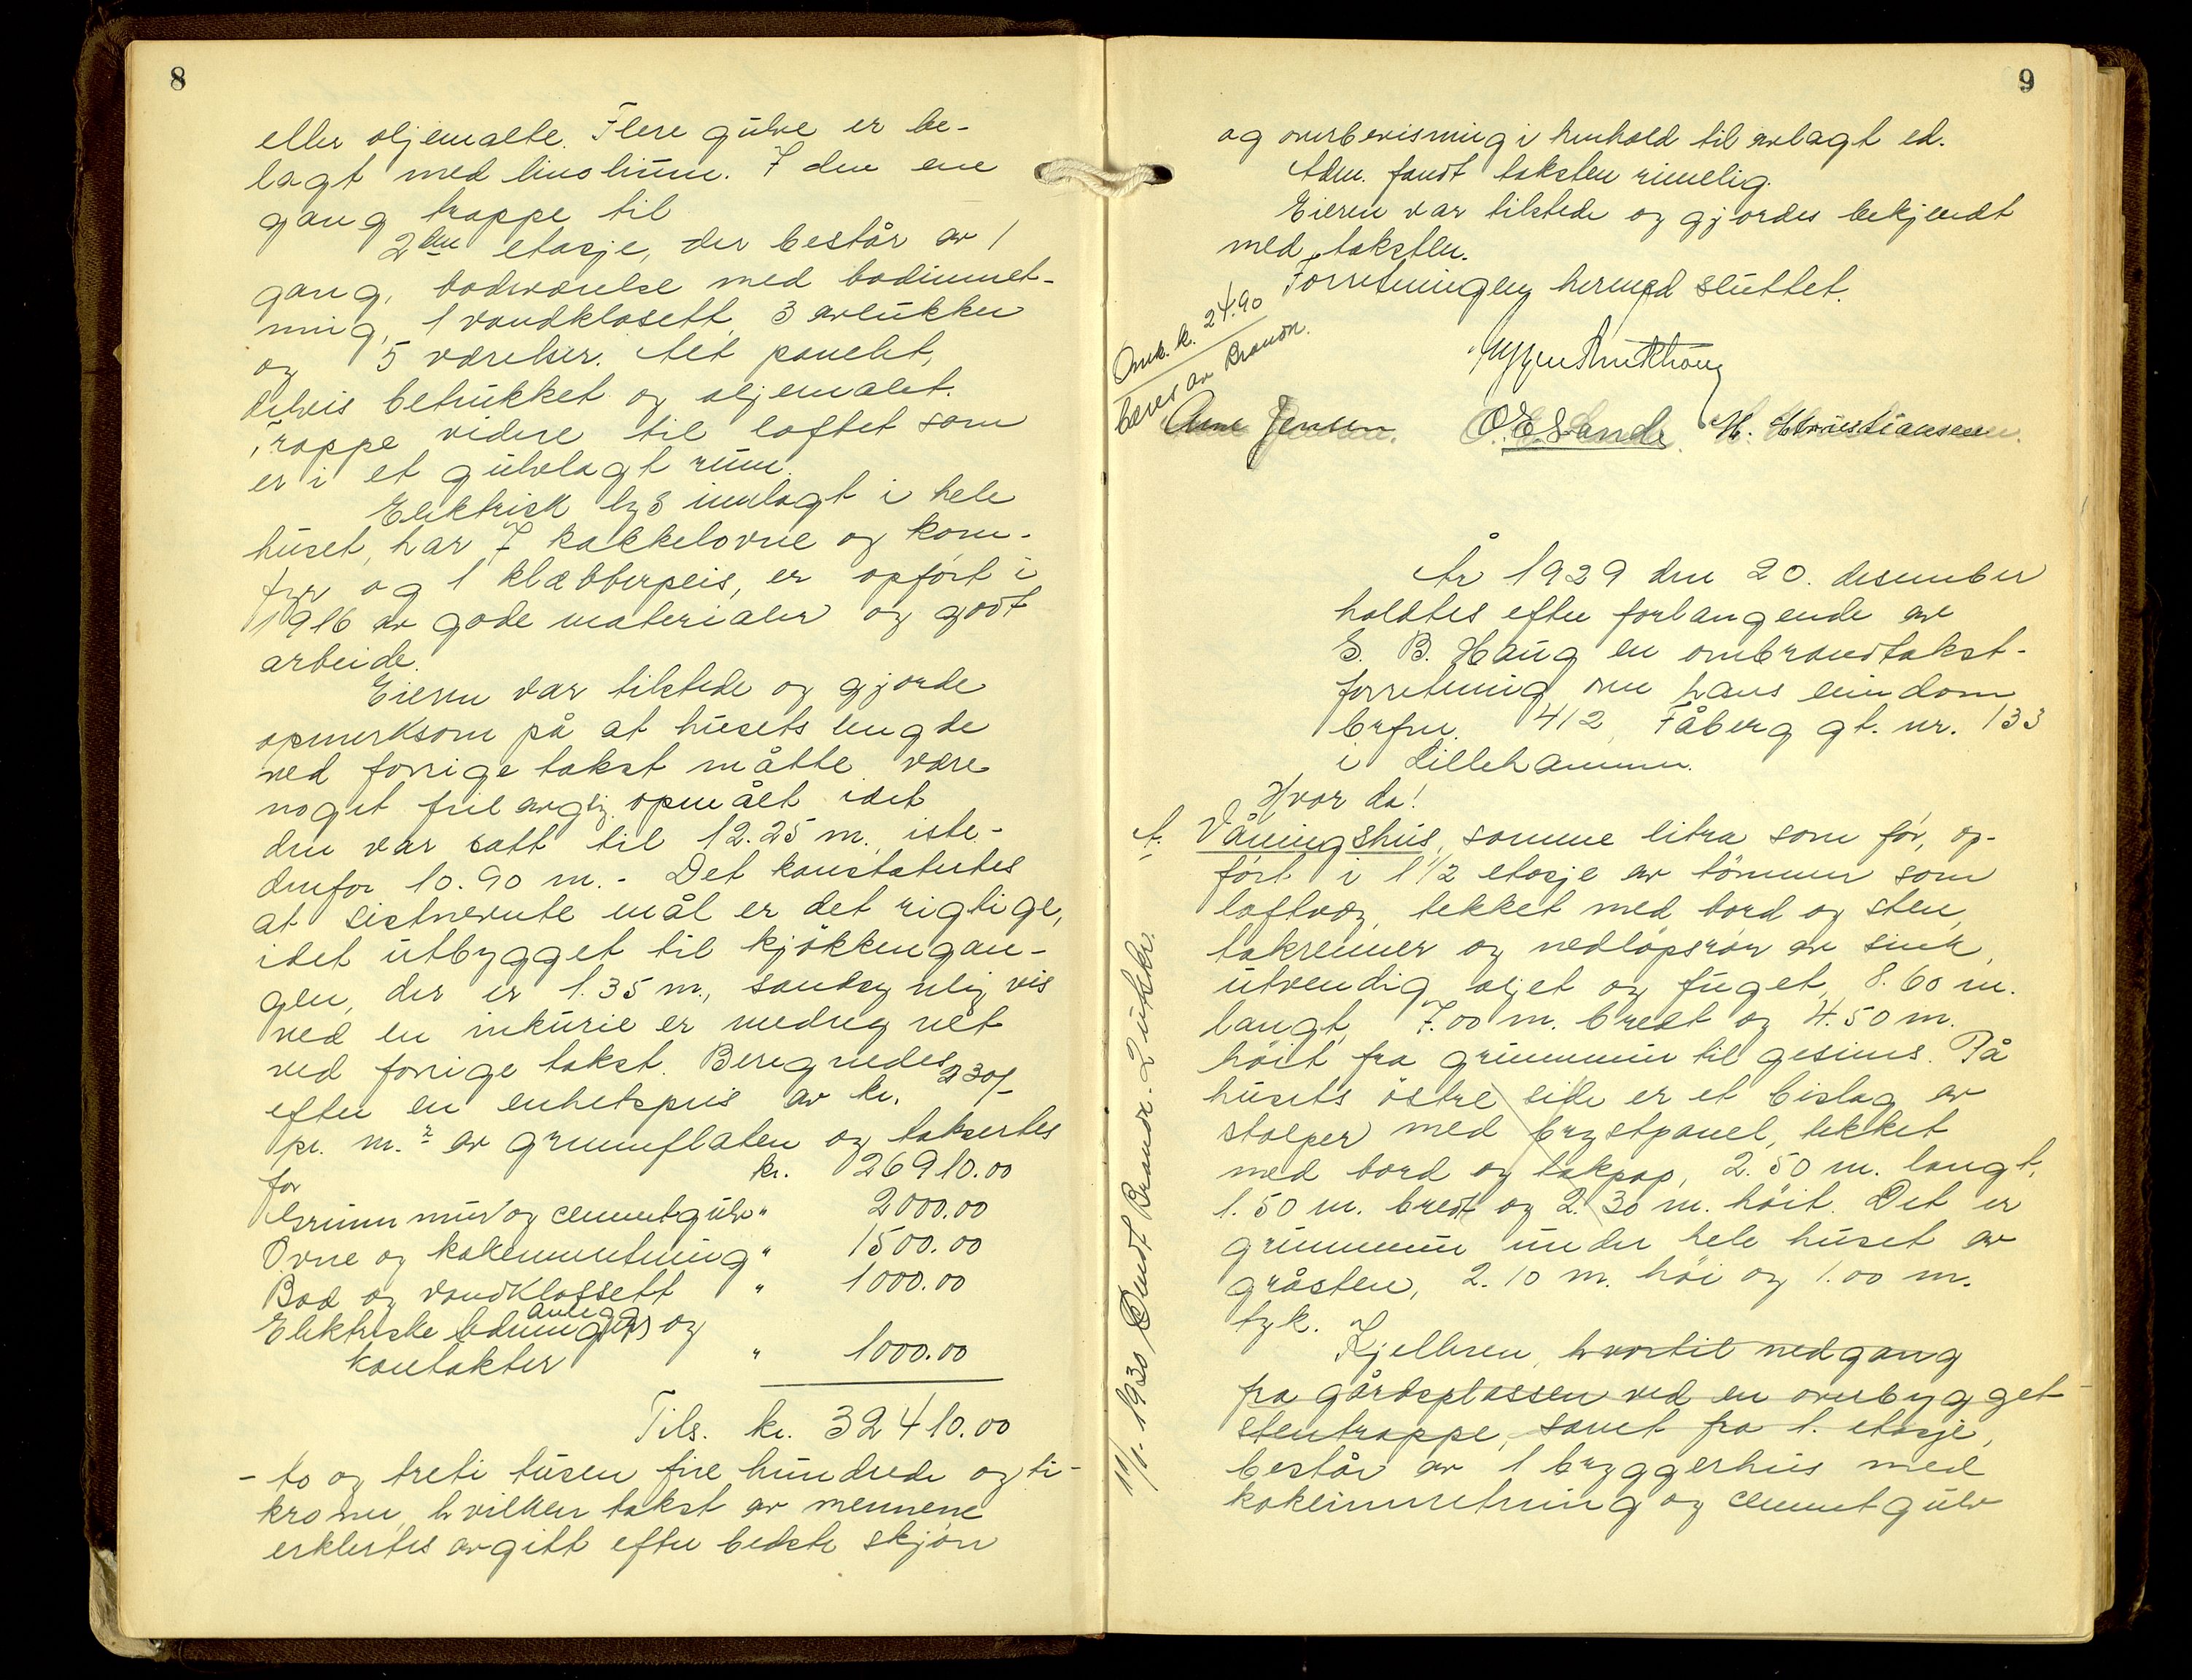 8
eller oljemalte. Flere gulve er be-
lagt med linolium. I den ene
gang trappe til
2den etasje, der består av 1
gang, badeværelse med badeinnret-
ning, 1 vandklosett, 3 avlukker
og 5 værelser. Alt panelt,
delvis betrukket og oljemalet.
Trappe videre til loftet som
er i et gulvlagt rum.
Elektrisk lys innlagt i hele
huset, har 7 kakkelovne og kom-
fyr og 1 klæbberpeis, er opført i
1916 av gode materialer og godt
arbeide.
Eieren var tilstede og gjorde
opmerksom på at husets lengde
ved forrige takst måtte være
noget feilagtig opmålt idet
den var satt til 12.25 m. iste-
denfor 10.90 m. - Det konstatertes
at sistnevnte mål er det rigtige,
idet utbygget til kjøkkengan-
gen, der er 1.35 m., sandsynligvis
ved en inkurie er medregnet
ved forrige takst. Beregnedes
efter en enhetspris av kr. 230/-
pr. m.² av grunnflaten og taksertes
for kr. 26910.00
Grunnmur og cementgulv " 2000.00
Ovne og kokeinnretning " 1500.00
Bad og vandklossett " 1000.00
anlegg
Elektriske og
kontakter " 1000.00
Tils. kr. 32410.00
- to og treti tusen fire hundrede og ti -
kroner, hvilken takst av mennene
erklertes avgitt efter bedste skjøn
9
og overbevisning i henhold til avlagt ed.
Adm. fandt taksten rimelig.
Eieren var tilstede og gjordes bekjendt
med taksten.
Forretningen hermed sluttet.
Omk. kr. 24.90
bæres av Brandk.
Arne Jensen. O. E. Sande. H. Christiansen.
År 1929 den 20. desember
holdtes efter forlangende av
S. B. Haug en ombrandtakst-
forretning over hans eiendom
brfnr. 412, Fåberg gt. nr. 133
i Lillehammer.
Hvor da!
A. Våningshus, samme litra som før, op-
ført i 1 1/2 etasje av tømmer som
loftvæg, tekket med bord og sten,
takrenner og nedløpsrør av sink,
utvendig oljet og fuget, 8.60 m.
langt, 7.00 m. bredt og 4.50 m.
høit fra grunnmur til gesims. På
husets østre side er et bislag av
stolper med brystpanel, tekket
med bord og takpap, 2.50 m. langt,
1.50 m. bredt og 2.30 m. høit. Det er
grunnmur under hele huset av
gråsten, 2.10 m. høi og 1.00 m.
tyk.
Kjelleren, hvortil nedgang
fra gårdsplassen ved en overbygget
stentrappe, samt fra 1. etasje,
består av 1 bryggerhus med
kokeinnretning og cementgulv
11/1. 1930, Sendt Brandk. 2 utskr.